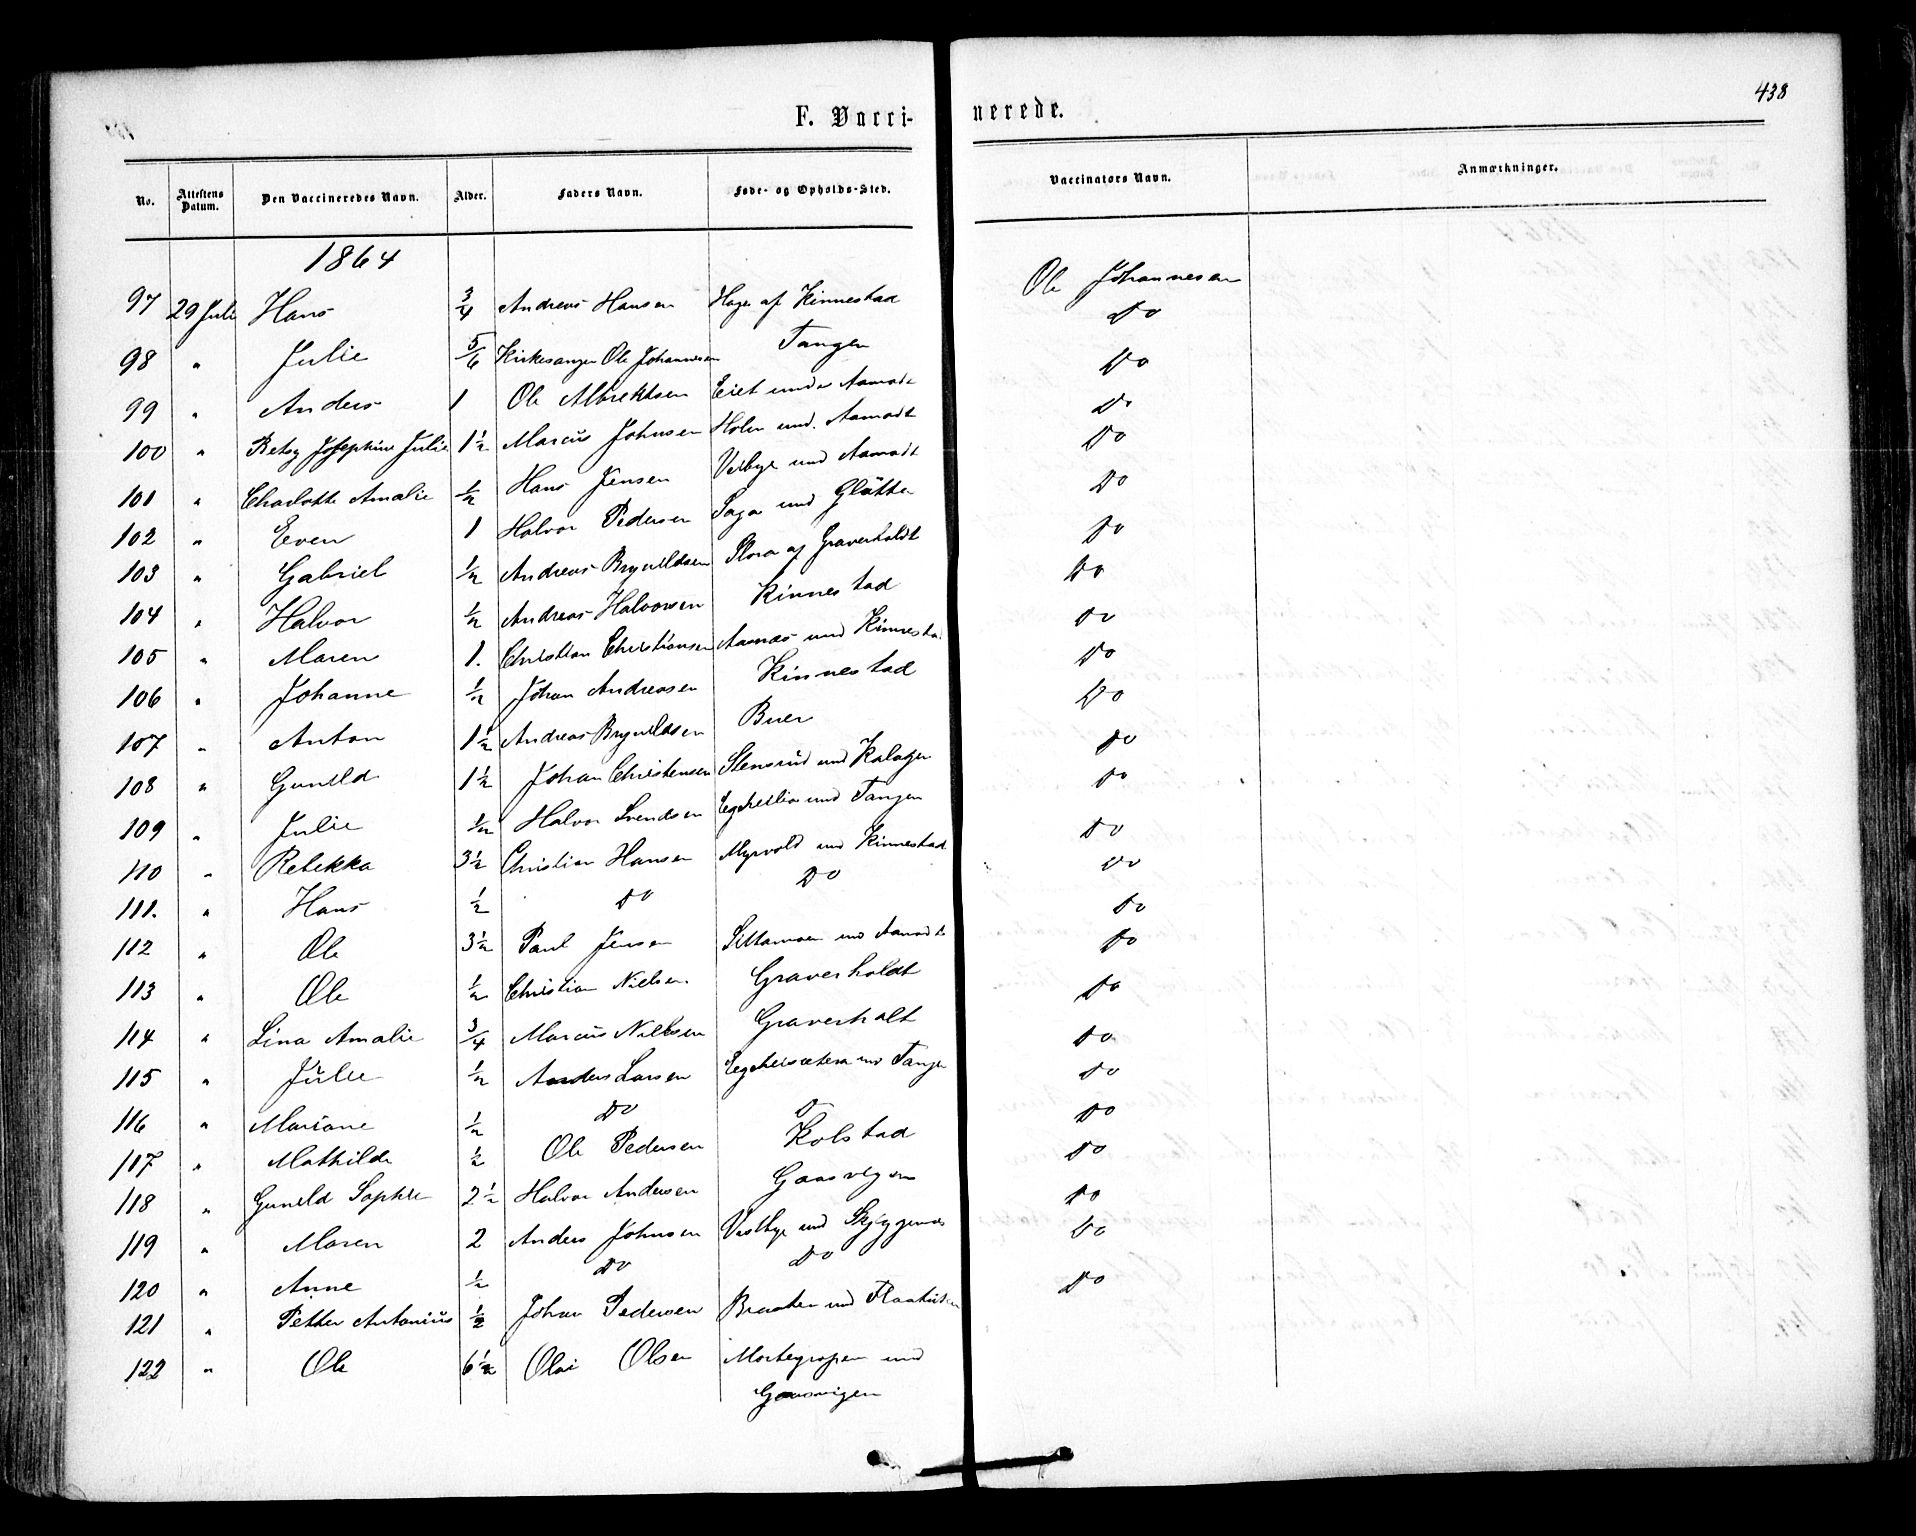 438
F. Vacci-nerede.
No. Attestens Datum. Den Vaccineredes Navn. Alder. Faders Navn. Føde- og Opholds-Sted. Vaccinators Navn. Anmærkninger.
1864
97 29 Juli Hans 3/4 Andreas Hansen Hagen af Kinnestad Ole Johannesen
98 " Julie 5/6 Kirkesanger Ole Johannesen Tangen Do
99 " Anders 1 Ole Albrektsen Eiet under Aamodt Do
100 " Betsy Josephine Julie 1 1/2 Marcus Johnsen Holen und. Aamodt Do
101 " Charlotte Amalie 1/2 Hans Jensen Vestbye und Aamodt Do
102 " Even 1 Halvor Pedersen Saga und Glötta Do
103 " Gabriel 1/2 Andreas Brynildsen Stora af Graverholdt Do
104 " Halvor 1/2 Andreas Halvorsen Kinnestad Do
105 " Maren 1. Christian Christiansen Aamnæs und Kinnestad Do
106 " Johanne 1/2 Johan Andreasen Kinnestad Do
107 " Anton 1 1/2 Andreas Brynildsen Buer Do
108 " Gunild 1 1/2 Johan Christensen Stensrud und Kalager Do
109 " Julie 1/2 Halvor Svendsen Egehellia und Tangen Do
110 " Rebekka 3 1/2 Christian Hansen Myrvold und Kinnestad Do
111. " Hans 1/2 Do Do Do
112 " Ole 3 1/2 Paul Jensen und Aamodt Do
113 " Ole 1/2 Christian Nielsen. Graverholdt Do
114 " Lina Amalie 3/4 Marcus Nielsen Graverholt Do
115 " Julie 1/2 Anders Larsen und Tangen Do
116 " Mariane 1/2 Do Do Do
117 " Mathilde 1/2 Ole Pedersen Kolstad Do
118 " Gunild Sophie 2 1/2 Halvor Andersen Gaasvigen Do
119 " Maren 2 Anders Johnsen Vestbye und Skjyggenæs Do
120 " Anne 1/2 Do Do Do
121 " Petter Antonius 1/2 Johan Pedersen Braaten und Do
122 " Ole 6 1/2 Olai Olsen Mortegropen und
Gaasvigen